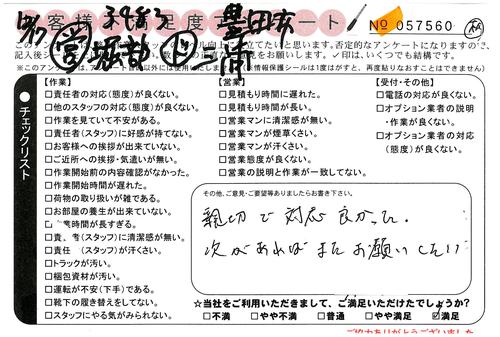 お客様満足度アンケート
No 057560
豊田市
【作業】
□責任者の対応(態度)が良くない。
□他のスタッフの対応(態度)が良くない。
□作業を見ていて不安がある。
□責任者(スタッフ)に好感が持てない。
□お客様への挨拶が出来ていない。
□ご近所への挨拶・気遣いが無い。
□作業開始前の内容確認がなかった。
□作業開始時間が遅れた。
□荷物の取り扱いが雑である。
□お部屋の養生が出来ていない。
業時間が長すぎる。
□責 者(スタッフ)に清潔感が無い。
□責任 (スタッフ)が汗くさい。
□トラックが汚い。
□梱包資材が汚い。
□運転が不安(下手)である。
□靴下の履き替えをしてない。
□スタッフにやる気がみられない。
【営業】
□見積もり時間に遅れた。
□見積もり時間が長い。
□営業マンに清潔感が無い。
□営業マンが煙草くさい。
□営業マンが汗くさい。
□営業態度が良くない。
□営業の説明と作業が一致してない。
【受付・その他】
□電話の対応が良くない。
□オプション業者の説明
・作業が良くない。
□オプション業者の対応
(態度)が良くない。
● チェックリスト
その他、ご意見・ご要望等ありましたらお書き下さい。
親切で対応良かった。
次があればまたお願いしたい
☆当社をご利用いただきまして、ご満足いただけたでしょうか?
□不満 □やや不満 □普通 □やや満足 ☑満足
ご協力ありがとうございました